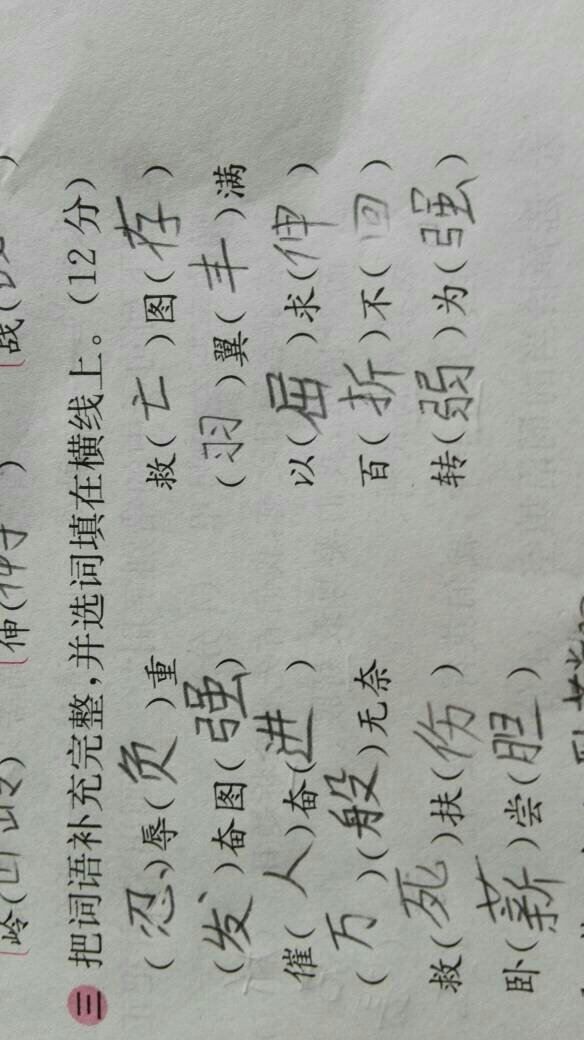 岭(山岭) 伸(伸手) 战(
三 把词语补充完整,并选词填在横线上。(12分)
(忍)辱(负)重 救(亡)图(存)
(发)奋图(强) (羽)翼(丰)满
催(人)奋(进) 以(屈)求(伸)
(万)(般)无奈 百(折)不(回)
救(死)扶(伤) 转(弱)为(强)
卧(薪)尝(胆)